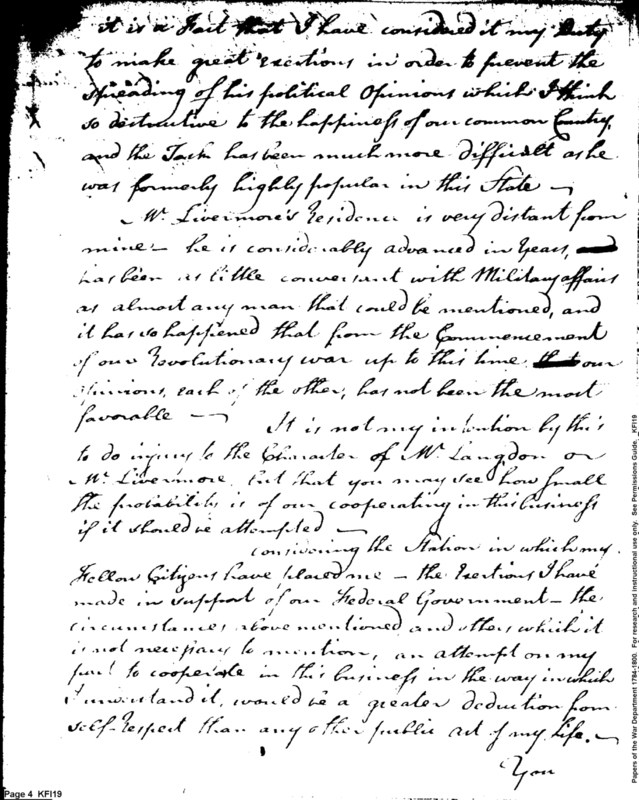 it is a Fact that I have considered it my Duty
to make great exertions in order to prevent the
spreading of his political Opinions which I think
so destructive to the happiness of our common Country,
and the Task has been much more difficult as he
was formerly highly popular in this State —
Mr. Livermore's Residence is very distant from
mine — he is considerably advanced in Years,
has been as little conversant with Military affairs
as almost any man that could be mentioned, and
it has so happened that from the Commencement
of our Revolutionary war up to this time our
opinions, each of the other, has not been the most
favorable — It is not my intention by this
to do injury to the Character of Mr. Langdon or
Mr. Livermore, but that you may see how small
the probability is of our cooperating in this business
if it should be attempted —
considering the Station in which my
Fellow Citizens have placed me — the Exertions I have
made in support of our Federal Government — the
circumstances above mentioned and others which it
is not necessary to mention, an attempt on my
part to cooperate in this business in the way in which
I understand it, would be a greater deduction from
self-Respect than any other public act of my life. —
You
Page 4 KFI19
Papers of the War Department 1784-1800. For research and instructional use only. See Permissions Guide. KFI19